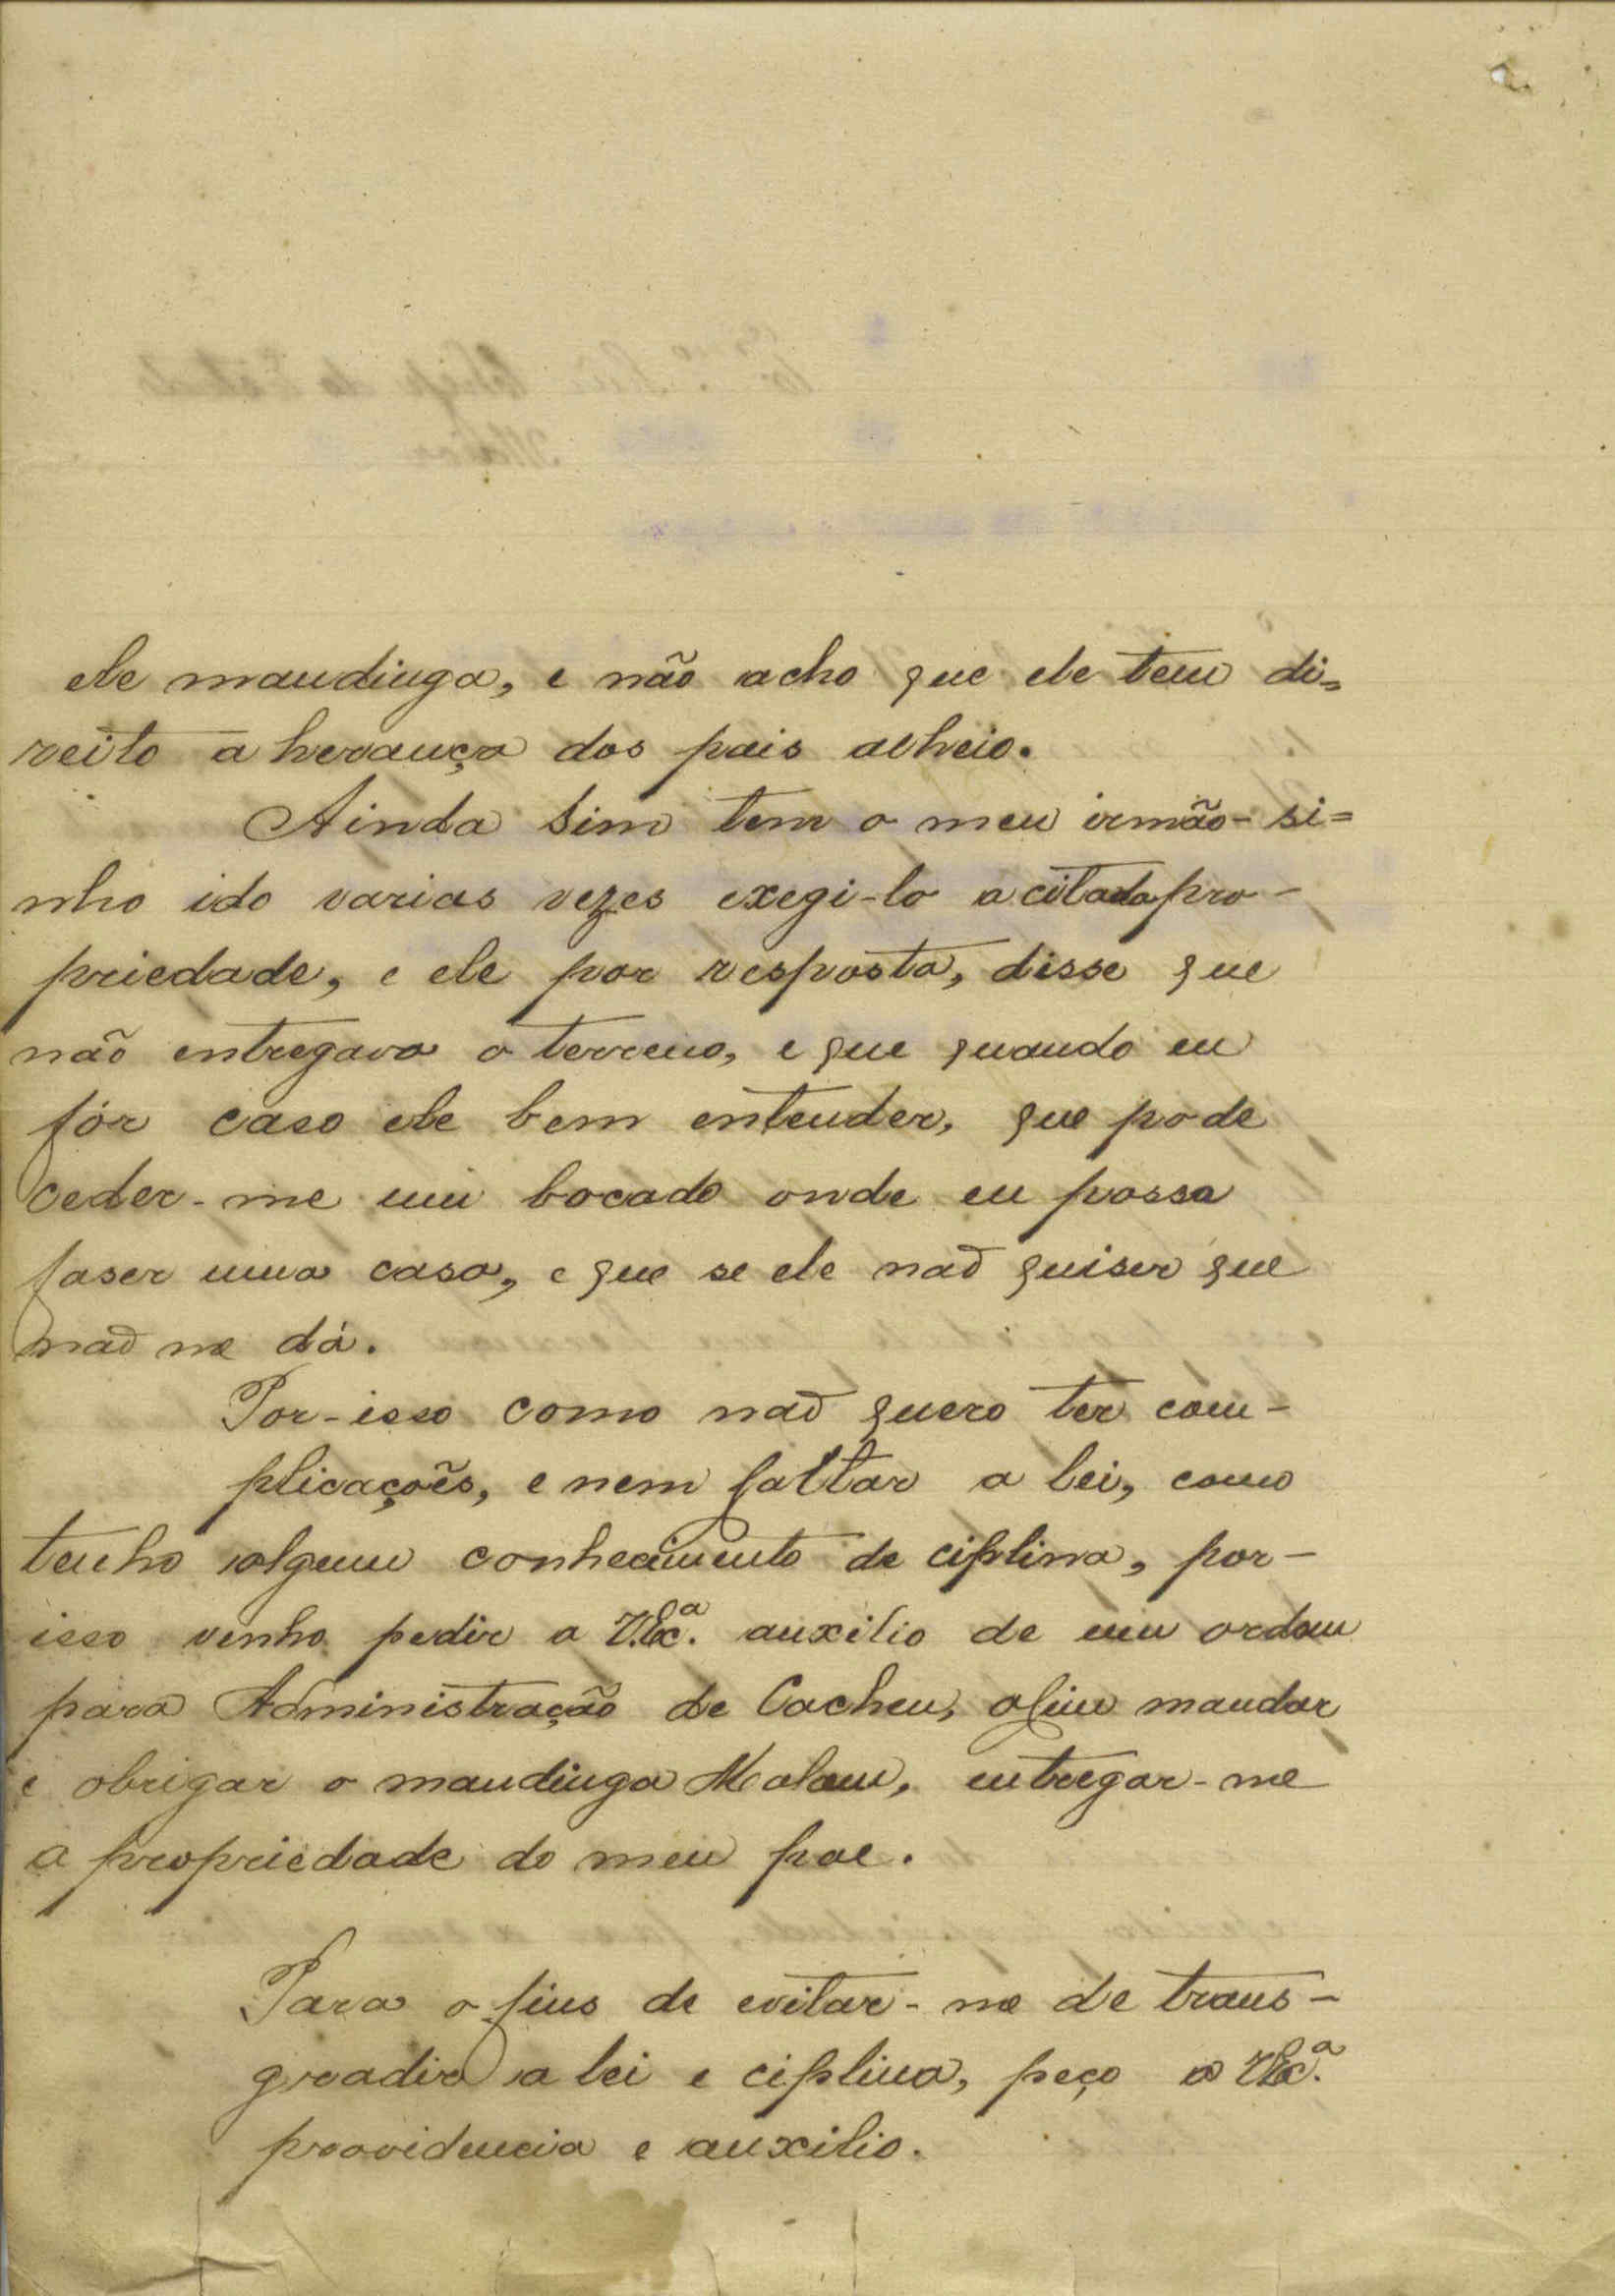 ele mandinga, e não acho que ele tem di=
reito a herança dos pais alheio.
Ainda sim tem o meu irmão-si=
nho ido varias vezes exegi-lo a citada pro-
priedade, e ele por resposta, disse que
não entregava o terreno, e que quando eu
fôr caso ele bem entender, que pode
ceder-me um bocado onde eu possa
faser uma casa, e que se ele naõ quiser que
naõ me dá.
Por-isso como naõ quero ter com-
plicaçoẽs, e nem faltar a lei, como
tenho algum conhecimento de ciplina, por-
isso venho pedir a V.Exª. auxilio de um ordem
para Administração de Cacheu, afim mandar
e obrigar o mandinga Malam, entregar-me
a propriedade do meu pae.
Para o fins de evitar-me de trans-
gradir a lei e ciplina, peço a V.Exª.
providencia e auxilio.